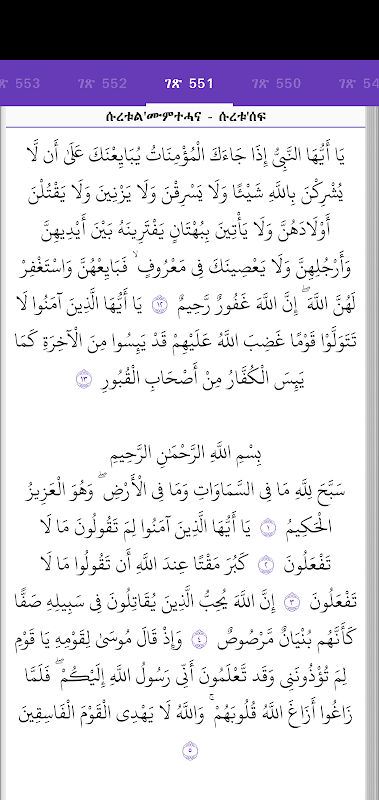 ገጽ 553 ገጽ 552 ገጽ 551 ገጽ 550 ገጽ 54
ሱረቱል'ሙምተሓና - ሱረቱ'ሰፍ
يَا أَيُّهَا النَّبِيُّ إِذَا جَاءَكَ الْمُؤْمِنَاتُ يُبَايِعْنَكَ عَلَىٰ أَن لَّا
يُشْرِكْنَ بِاللَّهِ شَيْئًا وَلَا يَسْرِقْنَ وَلَا يَزْنِينَ وَلَا يَقْتُلْنَ
أَوْلَادَهُنَّ وَلَا يَأْتِينَ بِبُهْتَانٍ يَفْتَرِينَهُ بَيْنَ أَيْدِيهِنَّ
وَأَرْجُلِهِنَّ وَلَا يَعْصِينَكَ فِي مَعْرُوفٍ ۙ فَبَايِعْهُنَّ وَاسْتَغْفِرْ
لَهُنَّ اللَّهَ ۖ إِنَّ اللَّهَ غَفُورٌ رَّحِيمٌ ١٢ يَا أَيُّهَا الَّذِينَ آمَنُوا لَا
تَتَوَلَّوْا قَوْمًا غَضِبَ اللَّهُ عَلَيْهِمْ قَدْ يَئِسُوا مِنَ الْآخِرَةِ كَمَا
يَئِسَ الْكُفَّارُ مِنْ أَصْحَابِ الْقُبُورِ ١٣
بِسْمِ اللَّهِ الرَّحْمَٰنِ الرَّحِيمِ
سَبَّحَ لِلَّهِ مَا فِي السَّمَاوَاتِ وَمَا فِي الْأَرْضِ ۖ وَهُوَ الْعَزِيزُ
الْحَكِيمُ ١ يَا أَيُّهَا الَّذِينَ آمَنُوا لِمَ تَقُولُونَ مَا لَا
تَفْعَلُونَ ٢ كَبُرَ مَقْتًا عِندَ اللَّهِ أَن تَقُولُوا مَا لَا
تَفْعَلُونَ ٣ إِنَّ اللَّهَ يُحِبُّ الَّذِينَ يُقَاتِلُونَ فِي سَبِيلِهِ صَفًّا
كَأَنَّهُم بُنْيَانٌ مَّرْصُوصٌ ٤ وَإِذْ قَالَ مُوسَىٰ لِقَوْمِهِ يَا قَوْمِ
لِمَ تُؤْذُونَنِي وَقَد تَّعْلَمُونَ أَنِّي رَسُولُ اللَّهِ إِلَيْكُمْ ۖ فَلَمَّا
زَاغُوا أَزَاغَ اللَّهُ قُلُوبَهُمْ ۚ وَاللَّهُ لَا يَهْدِي الْقَوْمَ الْفَاسِقِينَ
٥